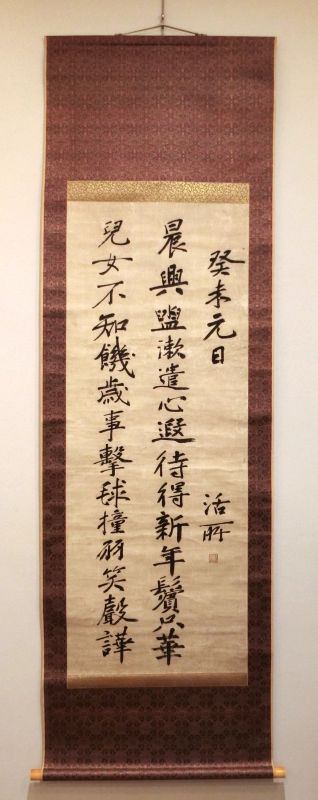 癸未元日 活所
晨興盥漱遣心遐待得新年鬢只華
兒女不知饑歳事擊毬撞羽笑聲譁